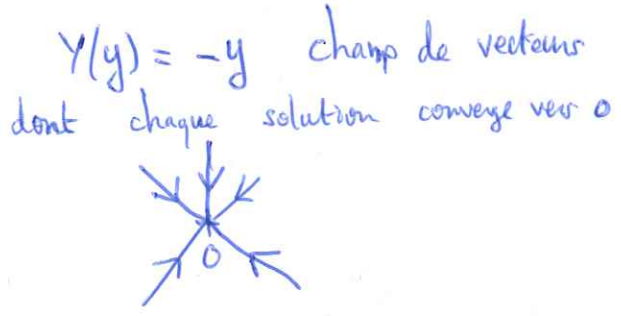 Y(y) = -y champ de vecteurs
dont chaque solution converge vers 0
0